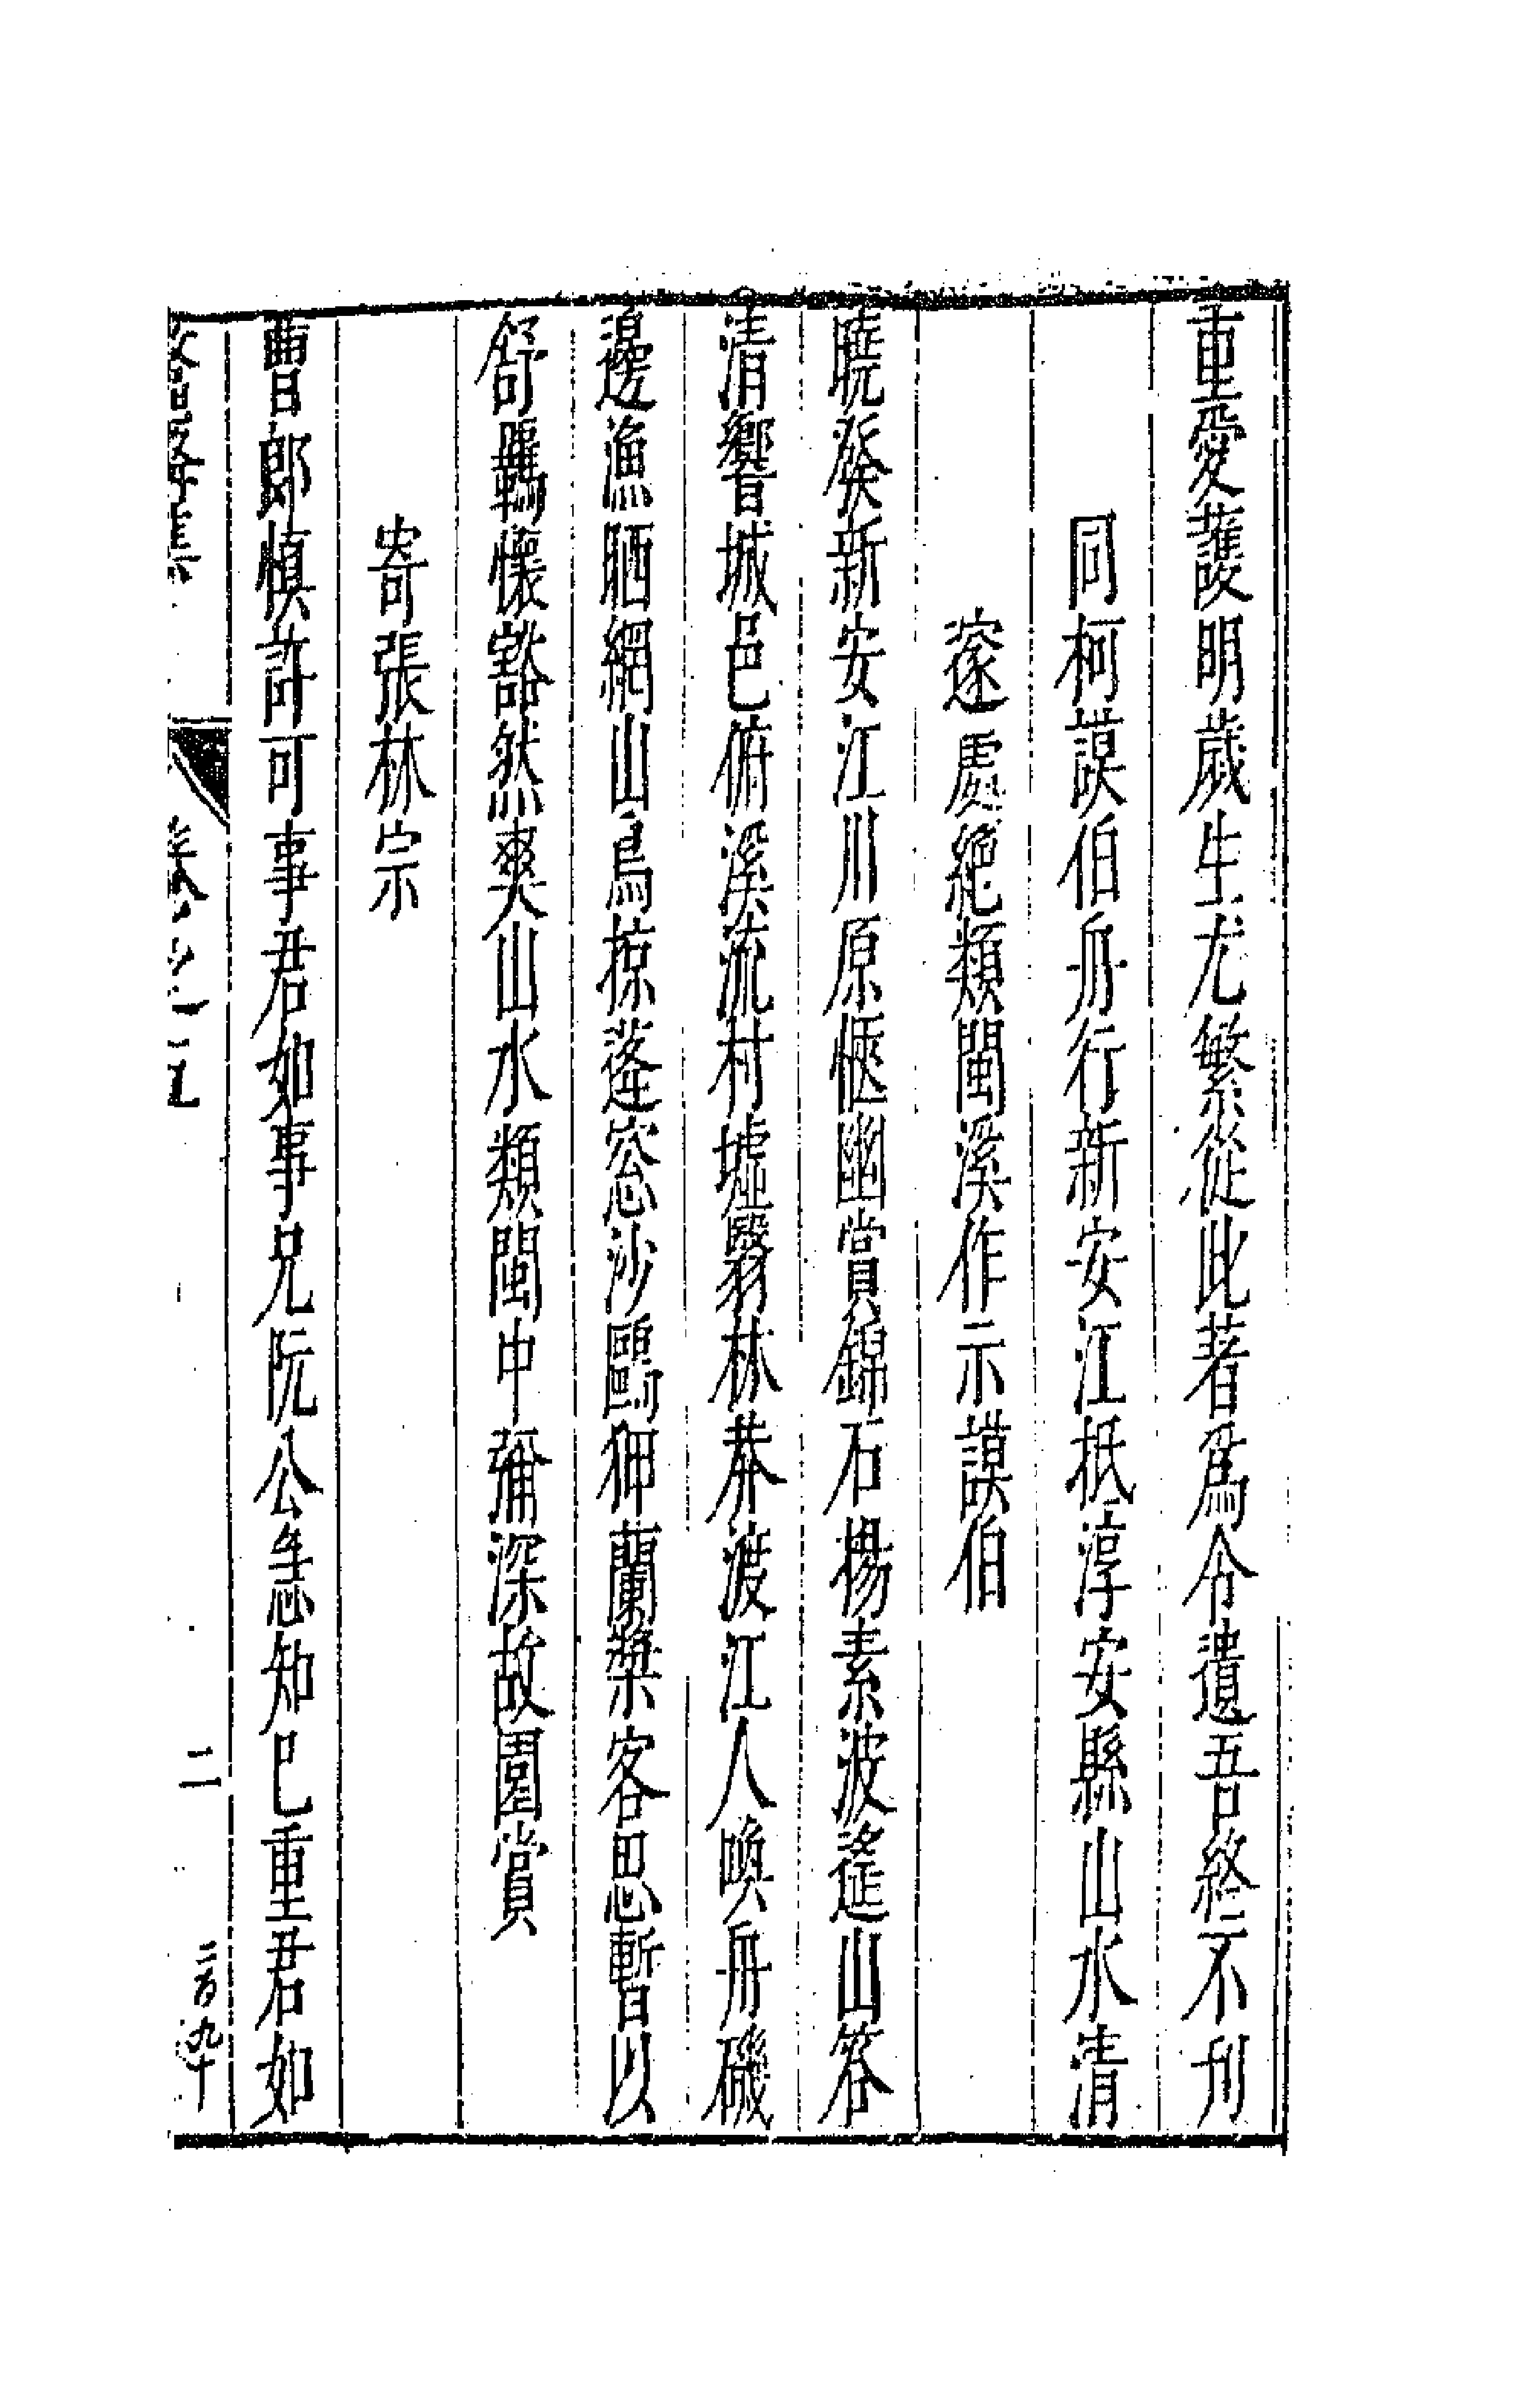 重愛護明歲生尤繁從此著爲令遺吾終不刋
同柯謨伯舟行新安江抵淳安縣山水清
邃處絶類閩溪作示謨伯
曉發新安江川原愜幽賞錦石楊素波遙山答
清響城邑俯溪流村墟翳林莽渡江人喚舟磯
邊漁晒網山鳥掠蓬窓沙鷗狎蘭槳客思暫以
舒羈懷豁然爽山水類閩中彌深故園賞
寄張林宗
曹郎慎許可事君如事兄阮公急知巳重君如
二